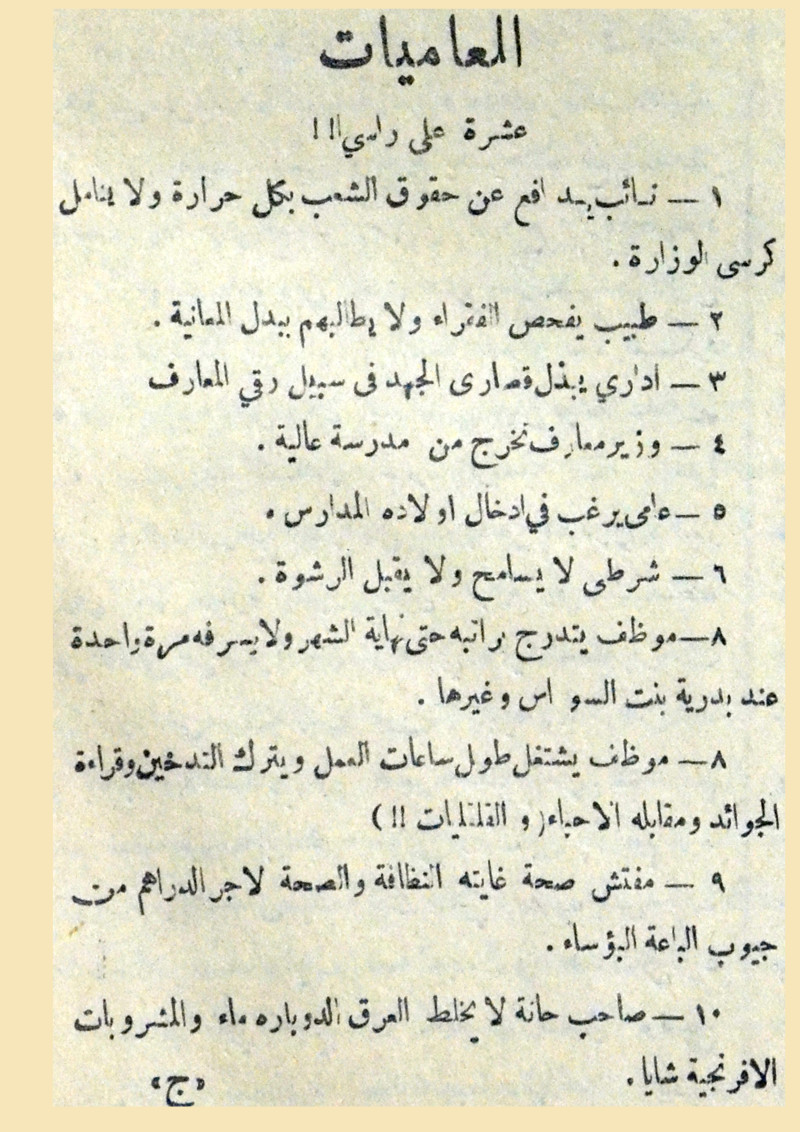 العاميات
عشرة على راسي!!!
١ — نائب يدافع عن حقوق الشعب بكل حرارة ولا يتامل
كرسى الوزارة .
٢ — طبيب يفحص الفقراء ولا يطالبهم ببدل المعانية .
٣ — اداري يبذل قصارى الجهد فى سبيل رقي المعارف
٤ — وزير معارف تخرج من مدرسة عالية .
٥ — عامى يرغب في ادخال اولاده المدارس .
٦ — شرطى لا يسامح ولا يقبل الرشوة .
٨ — موظف يتدرج براتبه حتى نهاية الشهر ولا يسرفه مرة واحدة
عند بدرية بنت السواس وغيرها .
٨ — موظف يشتغل طول ساعات العمل ويترك التدخين وقراءة
الجوائد ومقابله الاحباء (و القلقليات !!)
٩ — مفتش صحة غايته النظافة والصحة لاجر الدراهم من
جيوب الباعة البؤساء .
١٠ — صاحب حانة لا يخلط العرق الدوباره ماء والمشروبات
الافرنجية شايا .
«ج»